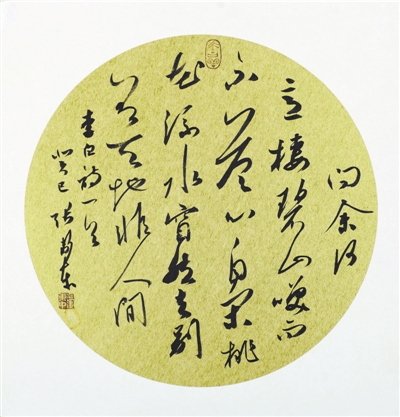 问余何
意棲碧山咲而
不答心自闲桃
花流水窅然去别
有天地非人间
李白诗一首
癸巳